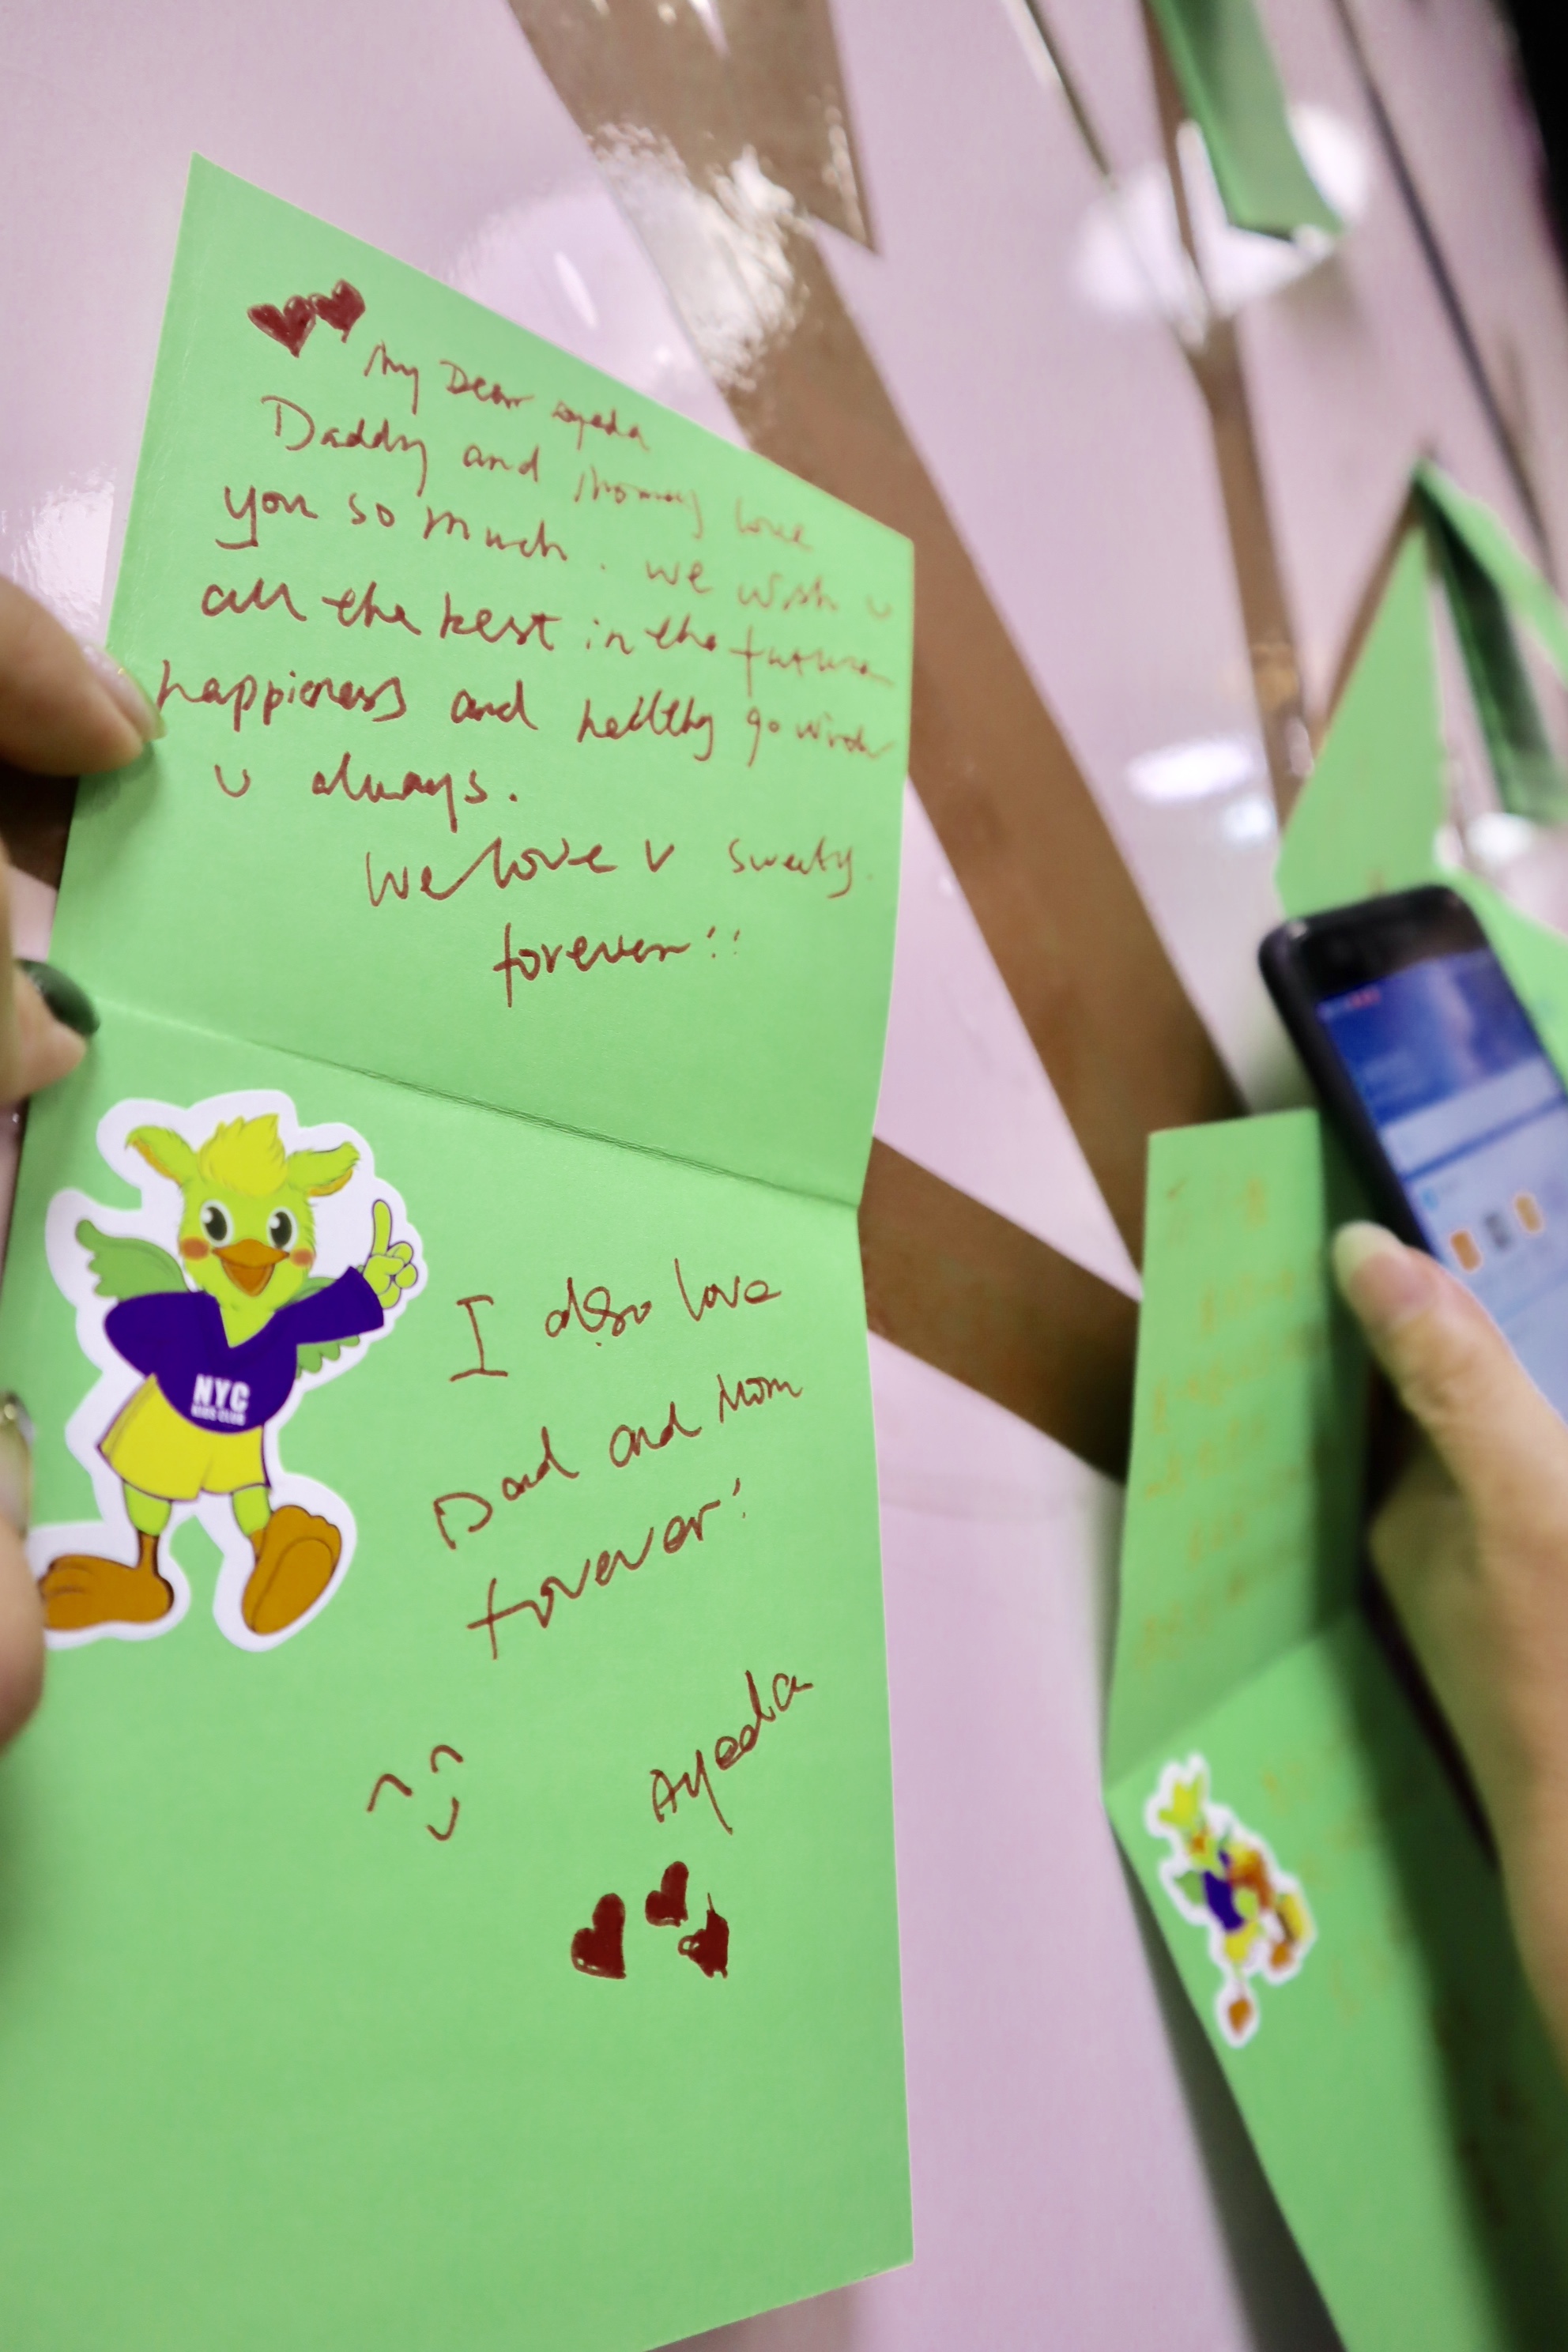 My Dear ayeda
Daddy and Momey love
you so much. we wish u
all the best in the future
happieness and heilthy go with
u always.
We love u sweety.
forever!!
NYC
KIDS CLUB
I also love
Dad and Mom
forever!
Ayeda